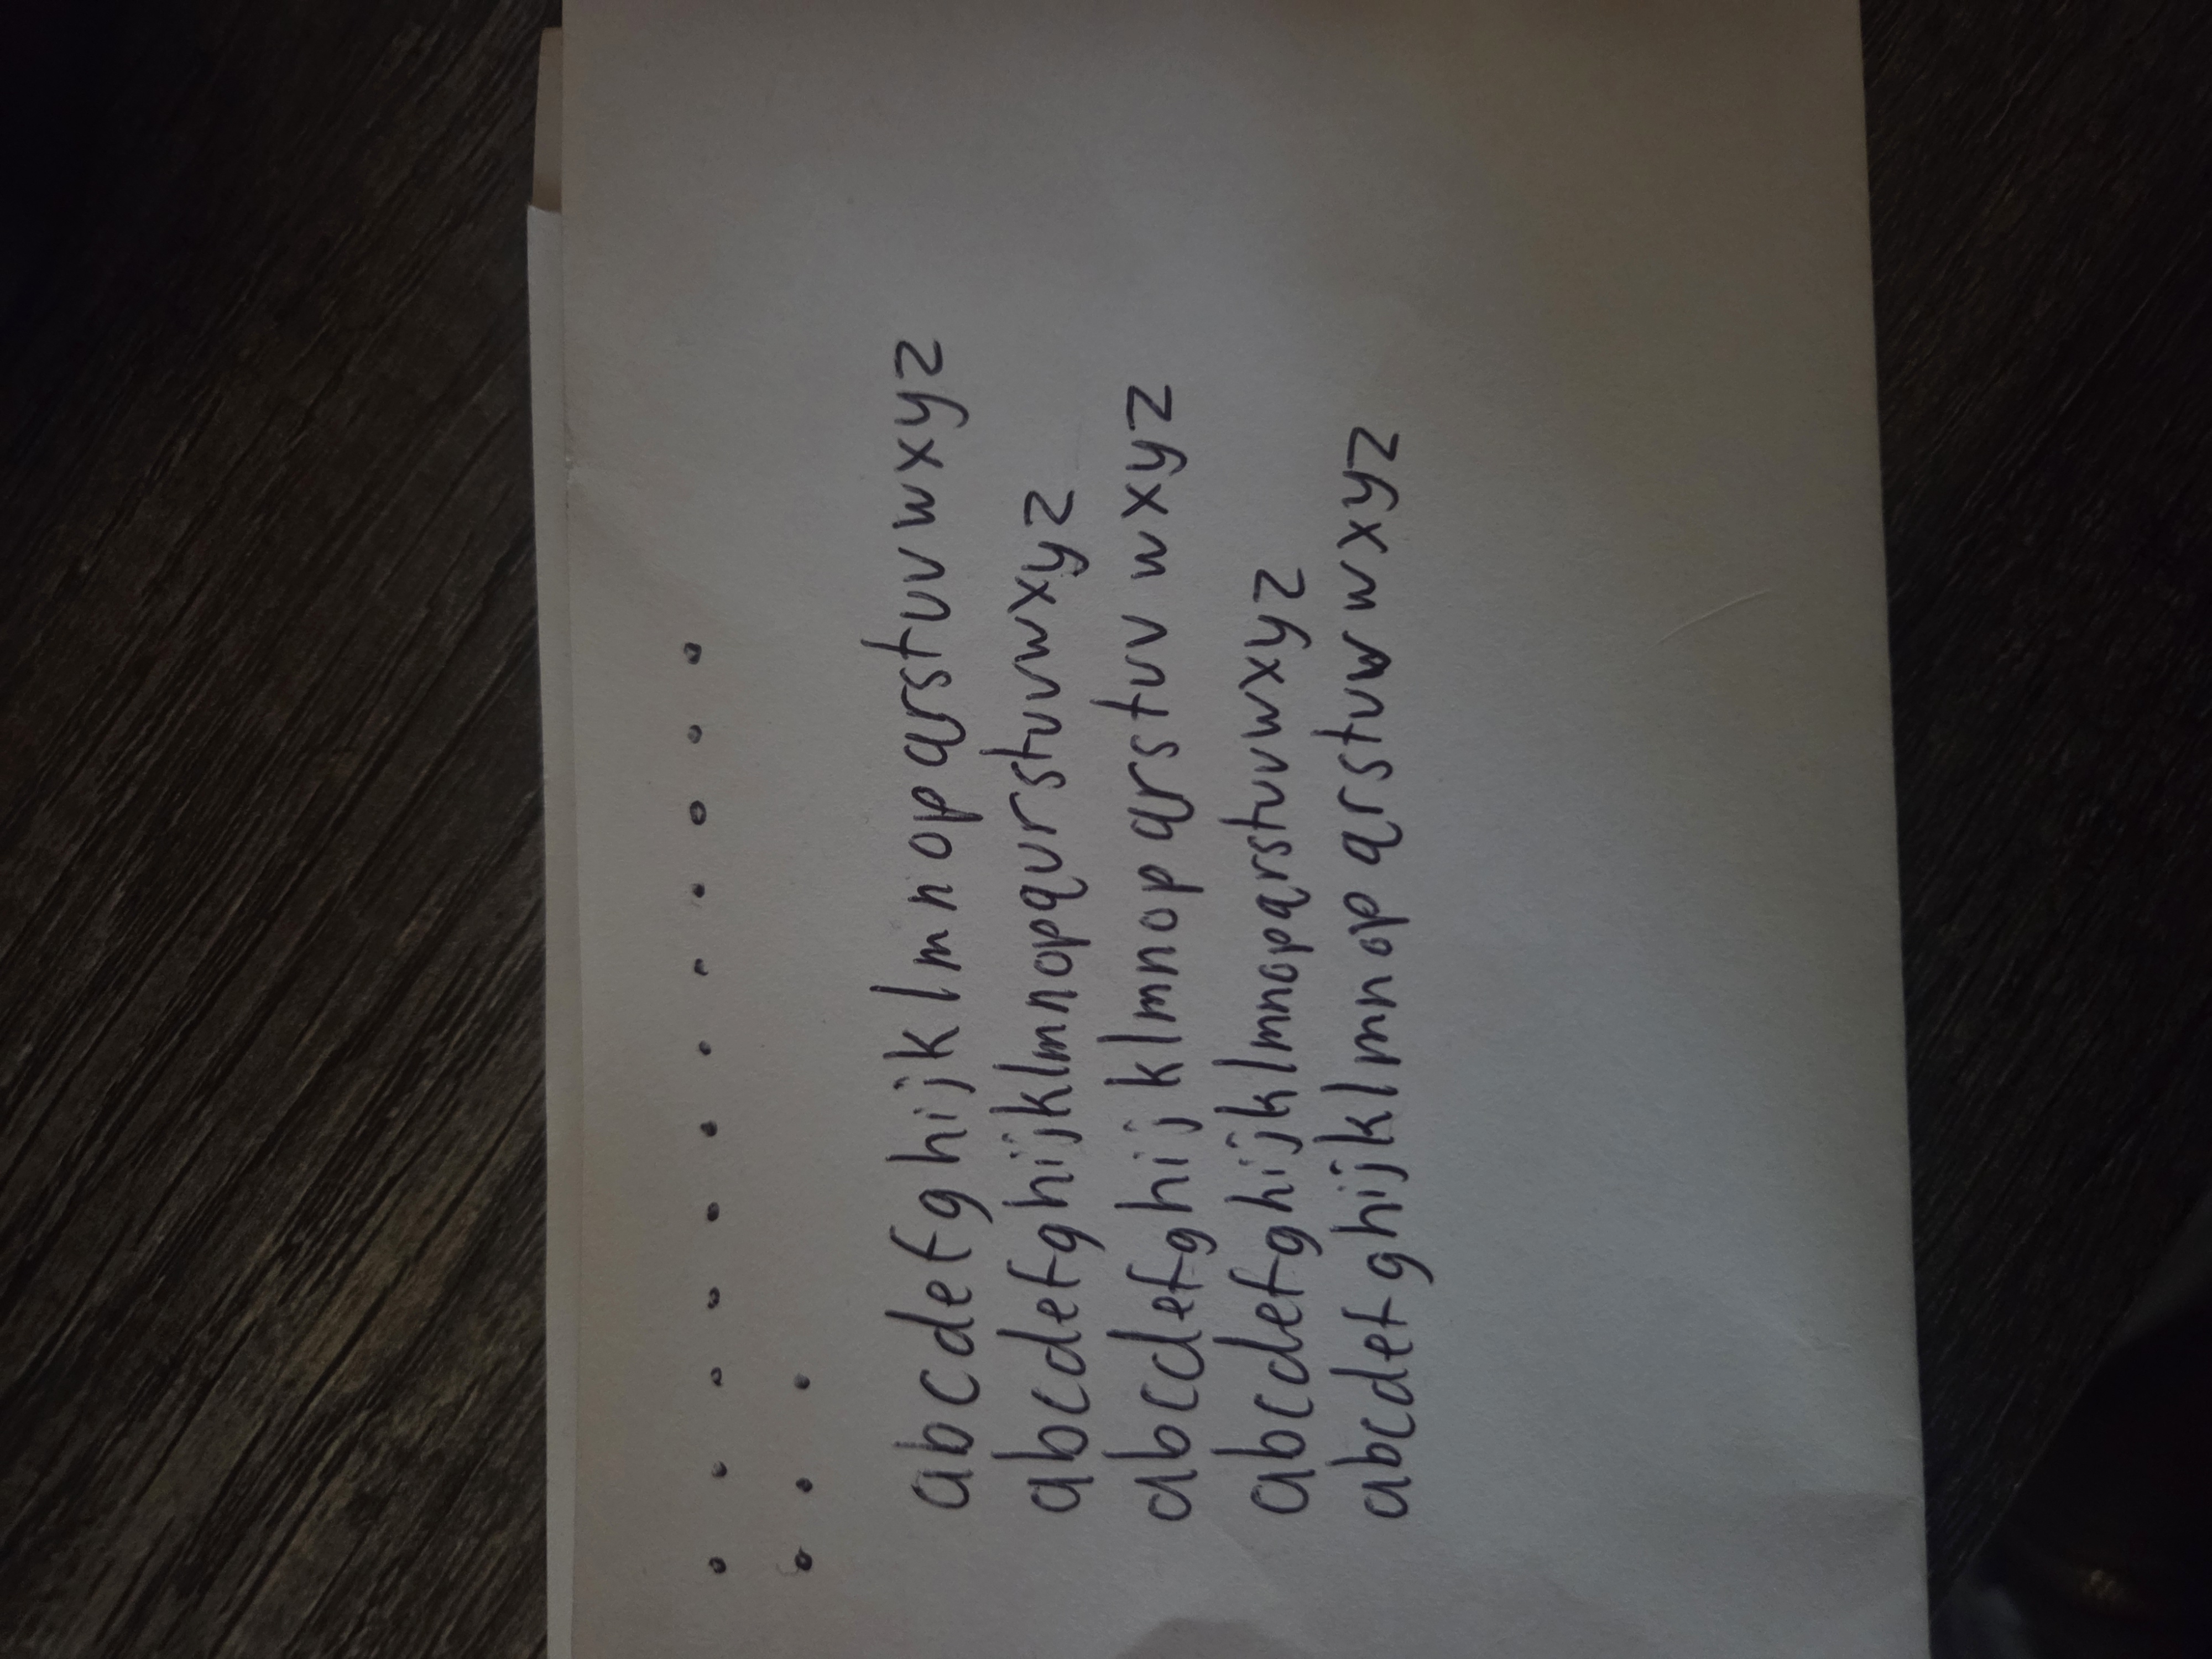 . . . . . . . . . . . .
. . .
abcdefghijklmnopqrstuvwxyz
abcdefghijklmnopqurstuvwxyz
abcdefghij klmnop qrstuv wxyz
abcdefghijklmnopqrstuvwxyz
abcdefghijklmnop qrstuv wxyz